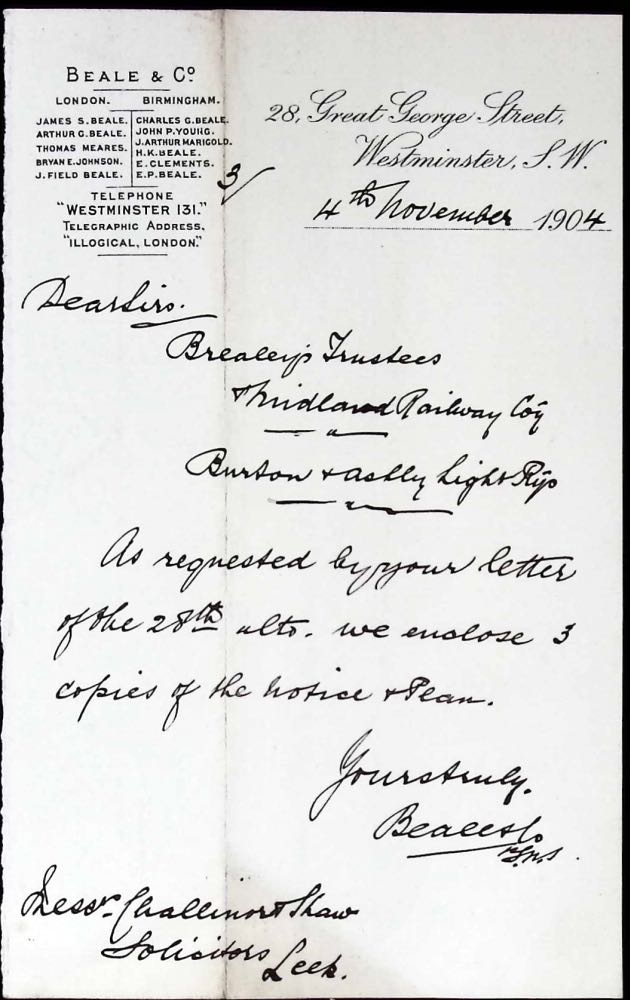 BEALE & Cº
LONDON. BIRMINGHAM.
JAMES S. BEALE. CHARLES G. BEALE.
ARTHUR G. BEALE. JOHN P. YOUNG.
THOMAS MEARES. J. ARTHUR MARIGOLD.
BRYAN E. JOHNSON. H. K. BEALE.
J. FIELD BEALE. E. CLEMENTS.
E. P. BEALE.
TELEPHONE
"WESTMINSTER 131."
TELEGRAPHIC ADDRESS,
"ILLOGICAL, LONDON."
3/
28, Great George Street,
Westminster, S.W.
4th November 1904
Dear Sirs.
Brealey's Trustees
& Midland Railway Coy
Burton & Ashby Light Rys
As requested by your letter
of the 28th ulto. we enclose 3
copies of the Notice & Plan.
Yours truly.
Beale & Co
Messrs. Challinor & Shaw
Solicitors
Leek.